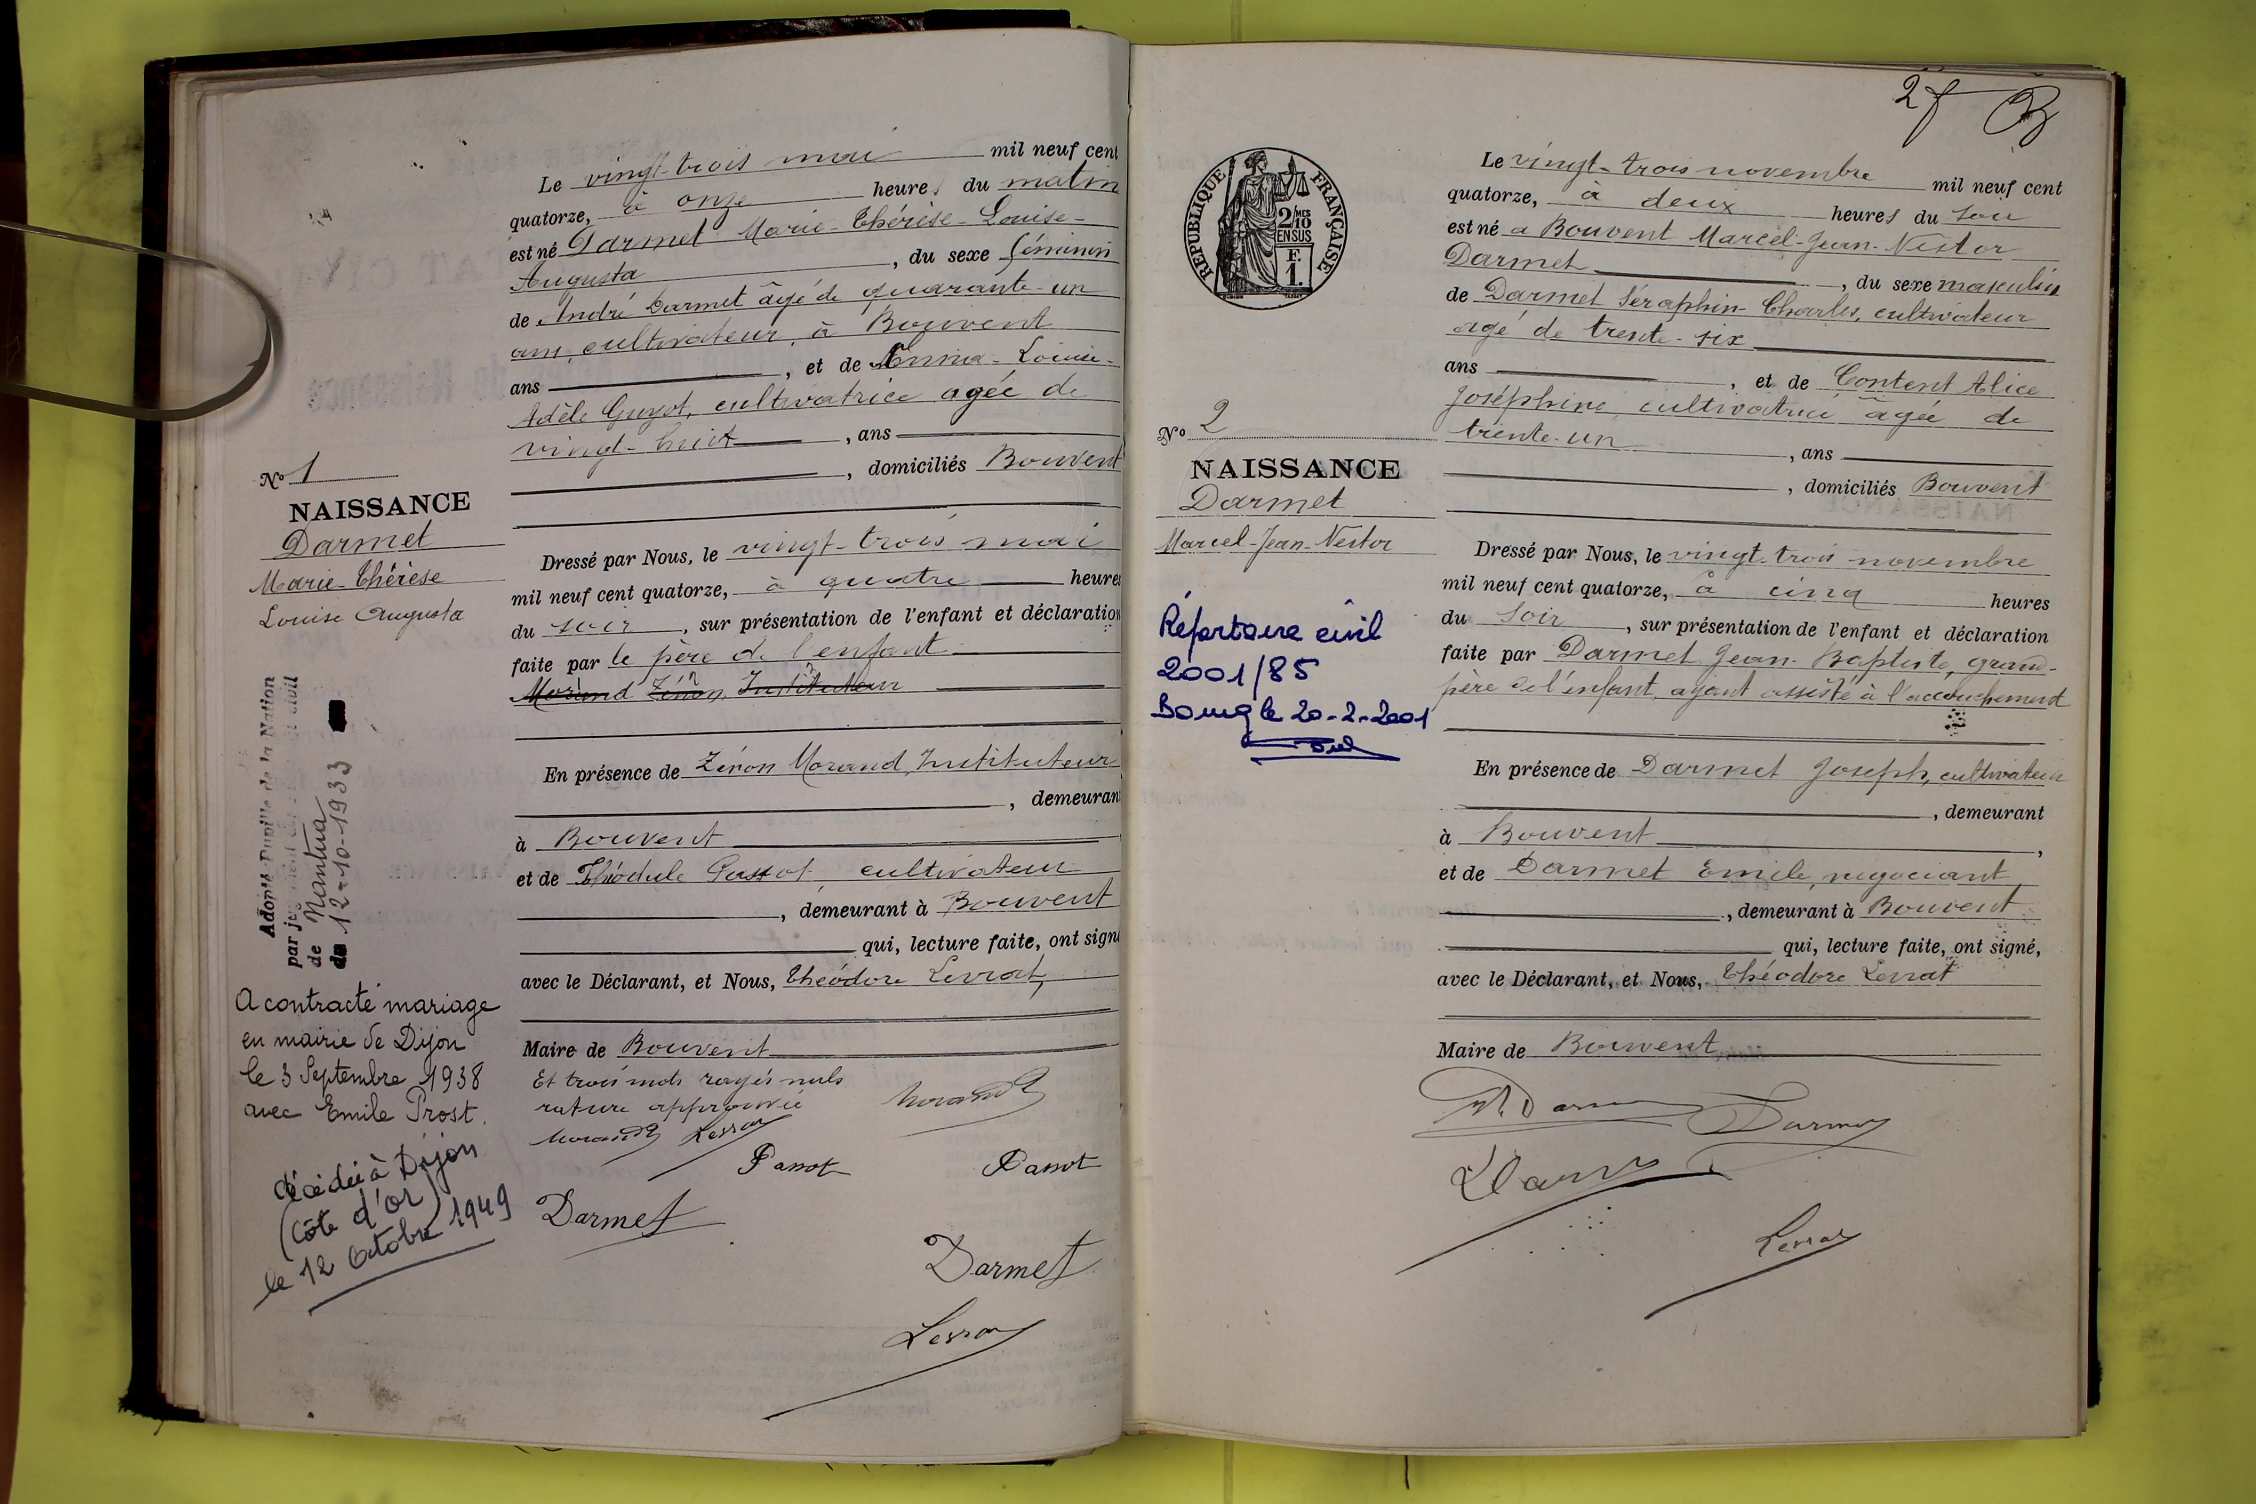 Le vingt-trois mai mil neuf cent
quatorze, à onze heures du matin
est né Darmet Marie-Thérèse-Louise-
Augusta, du sexe féminin
de André Darmet âgé de quarante-un
ans, cultivateur, à Bouvent
ans, et de Louise-
Adèle Guyot, cultivatrice agée de
vingt-huit, ans
, domiciliés Bouvent
Nº 1
NAISSANCE
Darmet
Marie-Thérèse
Louise Augusta
Dressé par Nous, le vingt-trois mai
mil neuf cent quatorze, à quatre heures
du soir, sur présentation de l'enfant et déclaration
faite par le père de l'enfant
Morand Zénon, Instituteur
En présence de Zénon Morand, Instituteur
, demeurant
à Bouvent
et de Théodule Passot cultivateur
, demeurant à Bouvent
qui, lecture faite, ont signé
avec le Déclarant, et Nous, Théodore Levrat,
Maire de Bouvent
Et trois mots rayés nuls
rature approuvée
Morand Levrat
Morand
Passot
Passot
Darmet
Darmet
Levrat
Adopté Pupille de la Nation
par jugement du tribunal civil
de Nantua
du 12-10-1933
A contracté mariage
en mairie de Dijon
le 3 Septembre 1938
avec Emile Prost.
décédée à Dijon
(Côte d'or)
le 12 Octobre 1949
2 f
RÉPUBLIQUE FRANÇAISE
2/10 MES
EN SUS
F.
1.
Le vingt-trois novembre mil neuf cent
quatorze, à deux heures du soir
est né a Bouvent Marcel-Jean-Nestor
Darmet, du sexe masculin
de Darmet Séraphin-Charles, cultivateur
agé de trente-six
ans, et de Content Alice
Joséphine, cultivatrice âgée de
trente-un, ans
, domiciliés Bouvent
Nº 2
NAISSANCE
Darmet
Marcel-Jean-Nestor
Répertoire civil
2001/85
Bourg le 20-2-2001
Dressé par Nous, le vingt-trois novembre
mil neuf cent quatorze, à cinq heures
du soir, sur présentation de l'enfant et déclaration
faite par Darmet Jean-Baptiste, grand-
père de l'enfant, ayant assisté à l'accouchement
En présence de Darmet Joseph, cultivateur
, demeurant
à Bouvent,
et de Darmet Emile, négociant
, demeurant à Bouvent
qui, lecture faite, ont signé,
avec le Déclarant, et Nous, Théodore Levrat
Maire de Bouvent
Darmet
Levrat